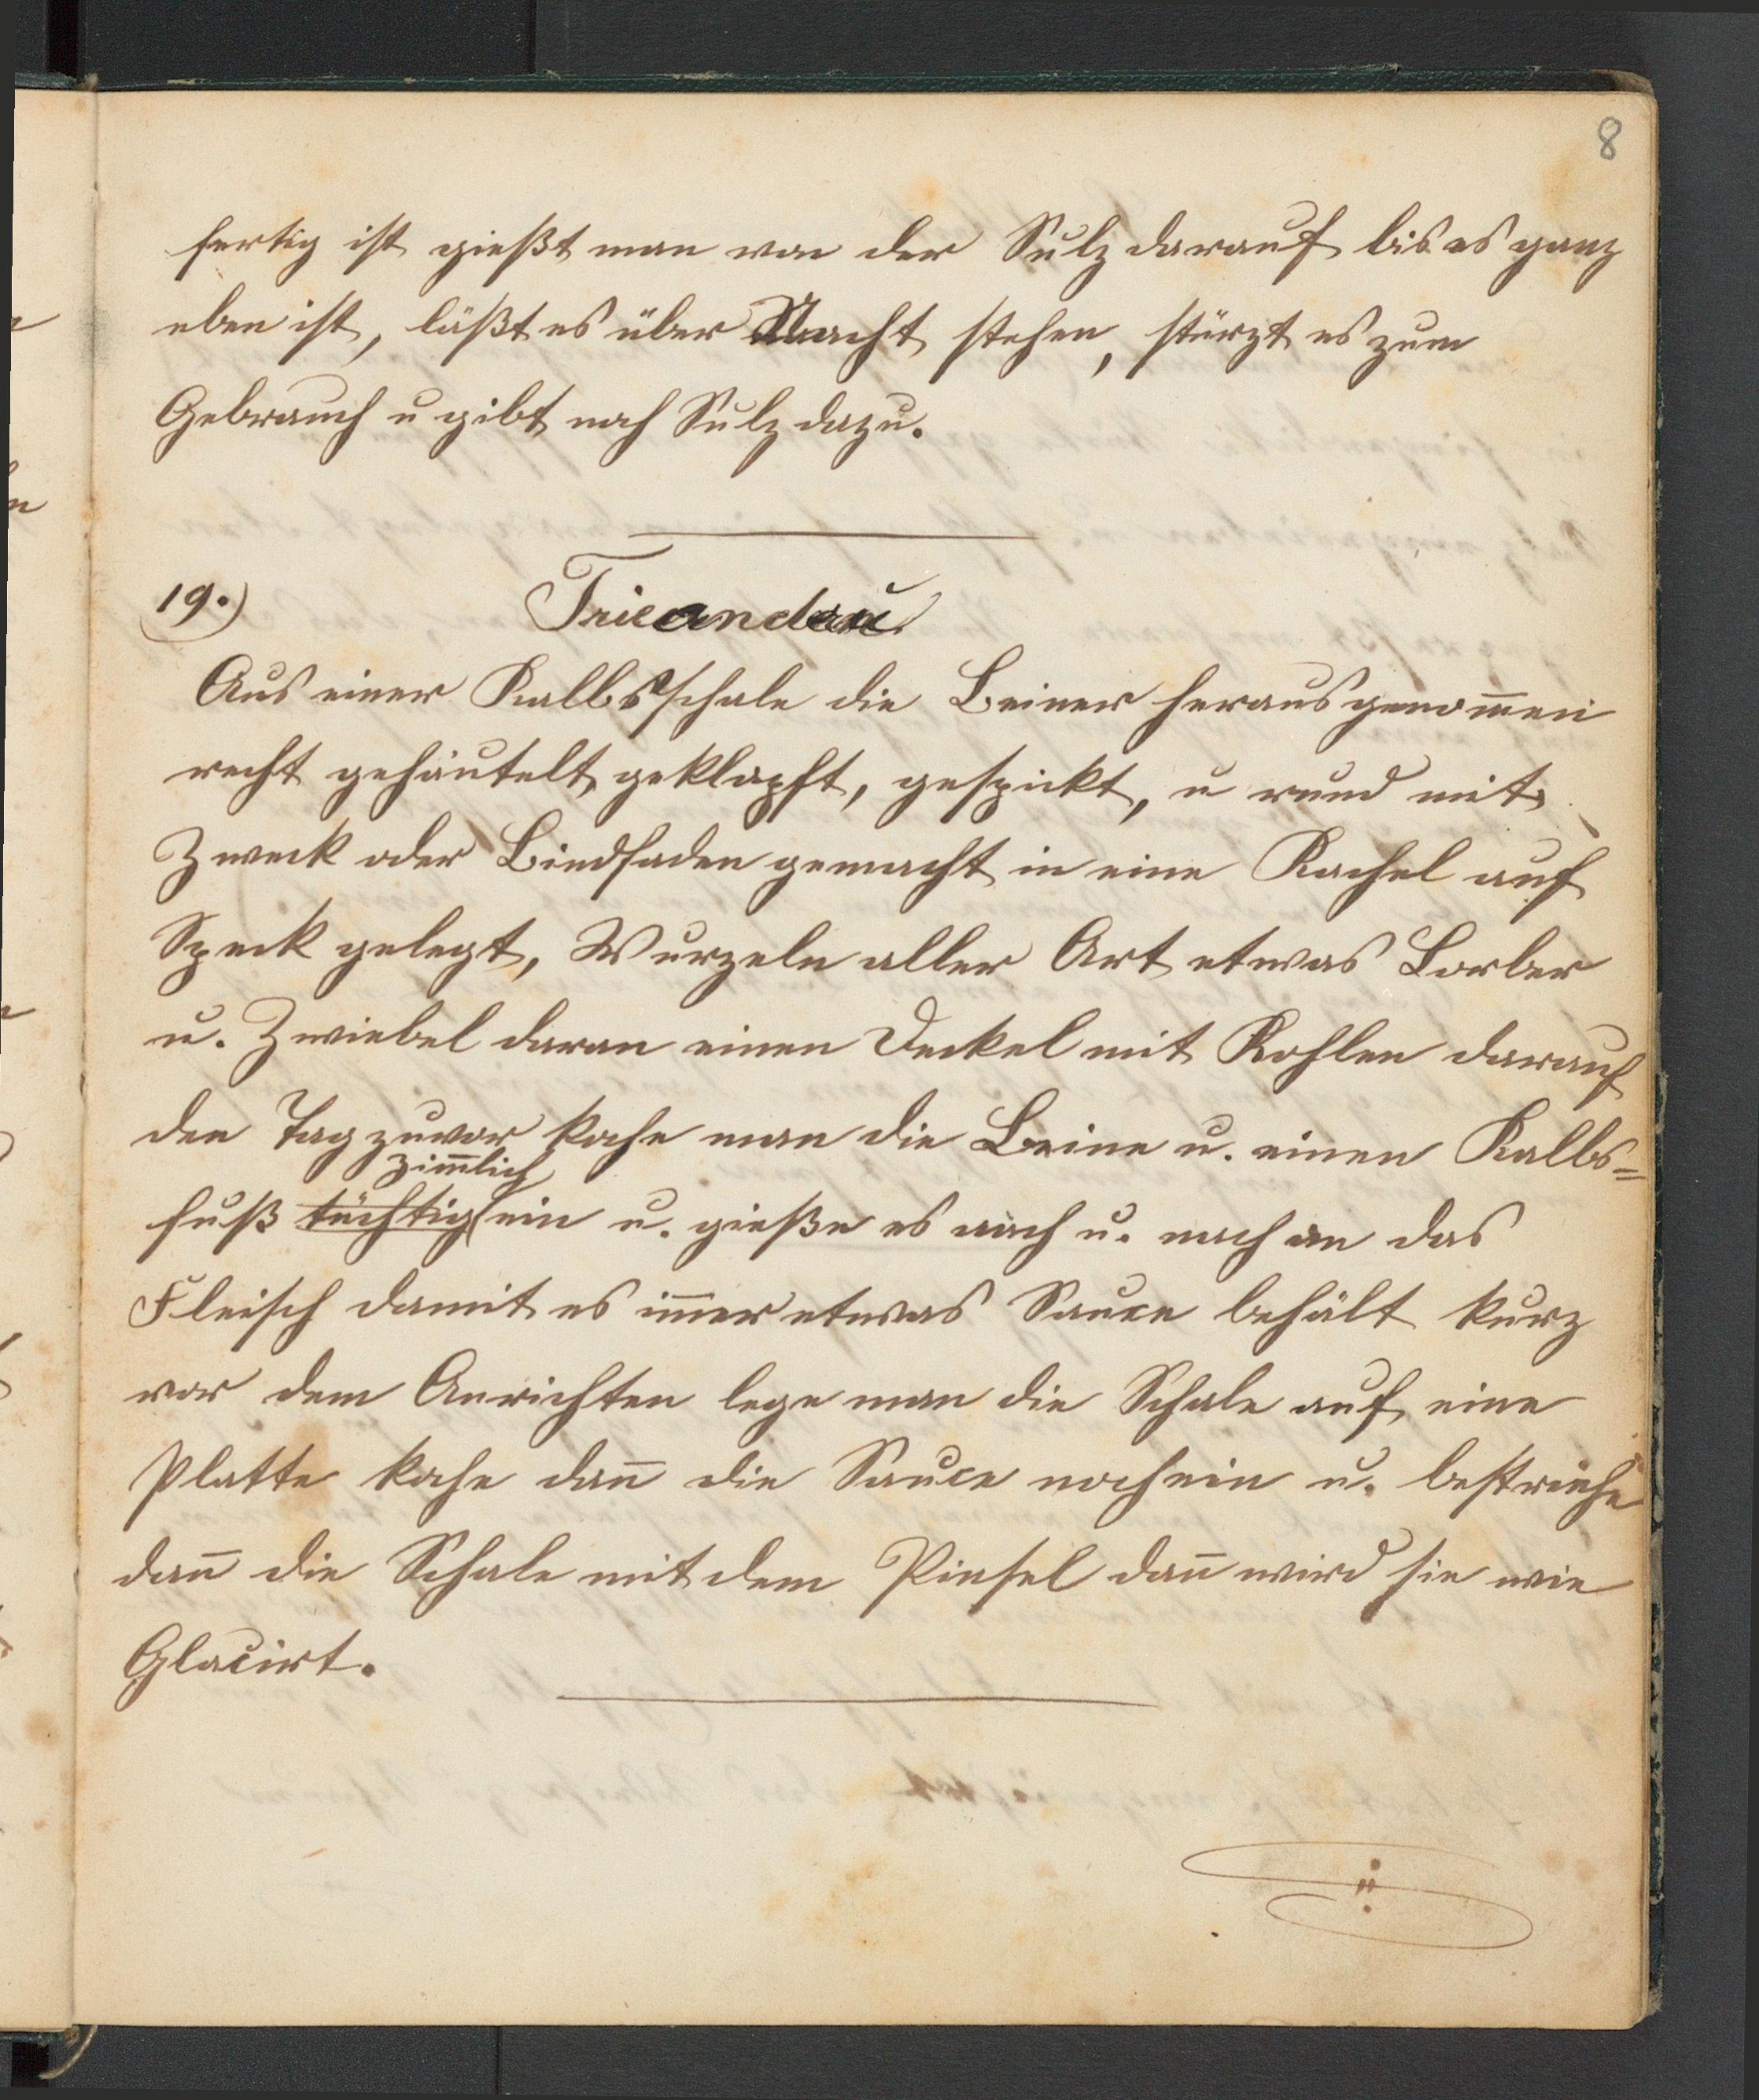 8
fertig ist gießt man von der Sulz darauf bis es ganz
eben ist, läßt es über Nacht stehen, stürzt es zum
Gebrauch u gibt noch Sulz dazu.
19.) Fricandau
Aus einer Kalbsschale die Beiner herausgenom̅en
recht gehäutelt, geklopft, gespickt, u rund mit
Zweck oder Bindfaden gemacht in eine Kachel auf
Speck gelegt, Wurzeln aller Art etwas Lorber
u. Zwiebel daran einen Deckel mit Kohlen darauf
den Tag zuvor koche man die Beine u. einen Kalbs=
zim̅lich
fuß tüchtig ein u. gieße es nach u. nach an das
Fleisch damit es im̅er etwas Sauce behält kurz
vor dem Anrichten lege man die Schale auf eine
Platte koche dan̅ die Sauce noch ein u. bestreiche
dan̅ die Schale mit dem Pinsel dan̅ wird sie wie
Glacirt.